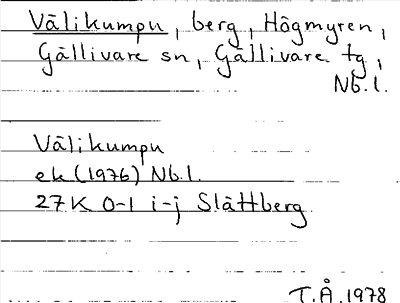 Välikumpu, berg, Högmyren,
Gällivare sn, Gällivare tg,
Nb.l.
Välikumpu
ek (1976) Nb.l.
27K 0-1 i-j Slättberg
T.Å. 1978